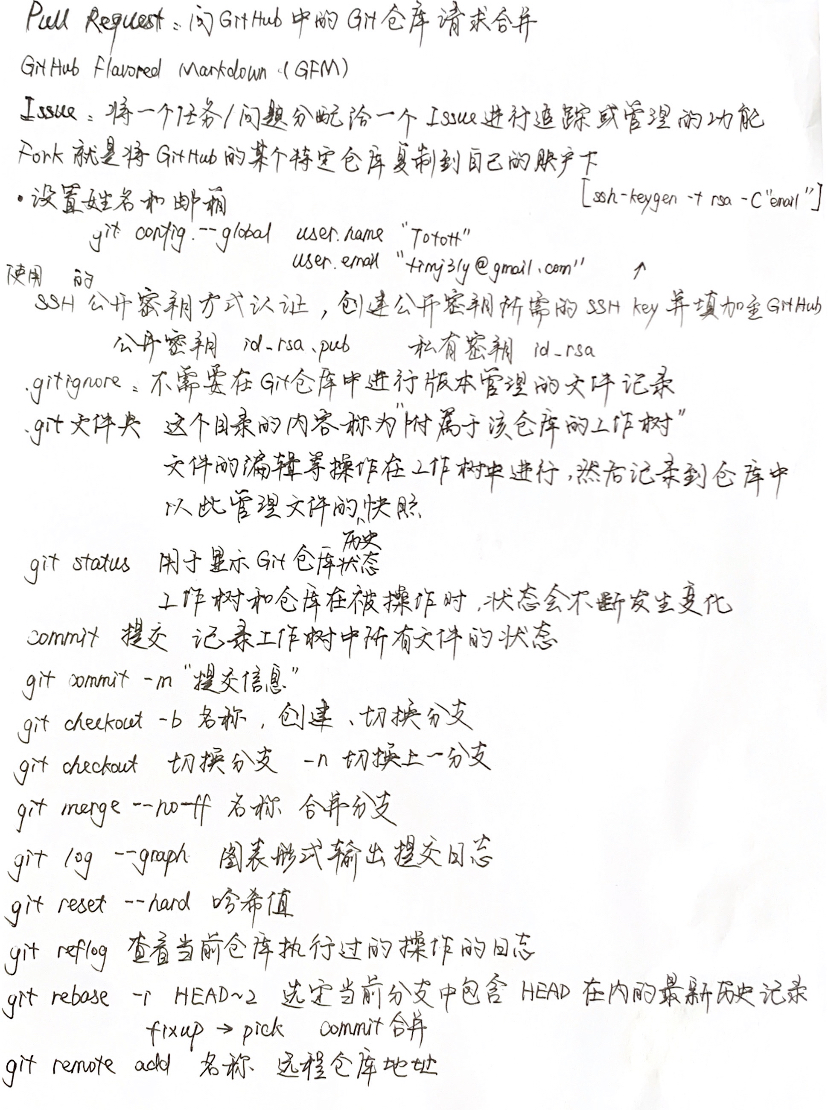 Pull Request：向GitHub中的Git仓库请求合并
GitHub Flavored Markdown (GFM)
Issue：将一个任务/问题分配给一个Issue进行追踪或管理的功能
Fork 就是将GitHub的某个特定仓库复制到自己的账户下
·设置姓名和邮箱 [ssh-keygen -t rsa -C "email"]
git config --global user.name "Totott"
user.email "timj3ly@gmail.com" ↑
使用 的
SSH 公开密钥方式认证，创建公开密钥所需的 SSH key 并填加至GitHub
公开密钥 id_rsa.pub 私有密钥 id_rsa
.gitignore：不需要在Git仓库中进行版本管理的文件记录
.git文件夹 这个目录的内容称为"附属于该仓库的工作树"
文件的编辑等操作在工作树中进行，然后记录到仓库中
以此管理文件的历史快照
git status 用于显示Git仓库状态
工作树和仓库在被操作时，状态会不断发生变化
commit 提交 记录工作树中所有文件的状态
git commit -m "提交信息"
git checkout -b 名称，创建、切换分支
git checkout 切换分支 -n 切换上一分支
git merge --no-ff 名称 合并分支
git log --graph 图表形式输出提交日志
git reset --hard 哈希值
git reflog 查看当前仓库执行过的操作的日志
git rebase -i HEAD~2 选定当前分支中包含 HEAD 在内的最新历史记录
fixup → pick commit合并
git remote add 名称 远程仓库地址